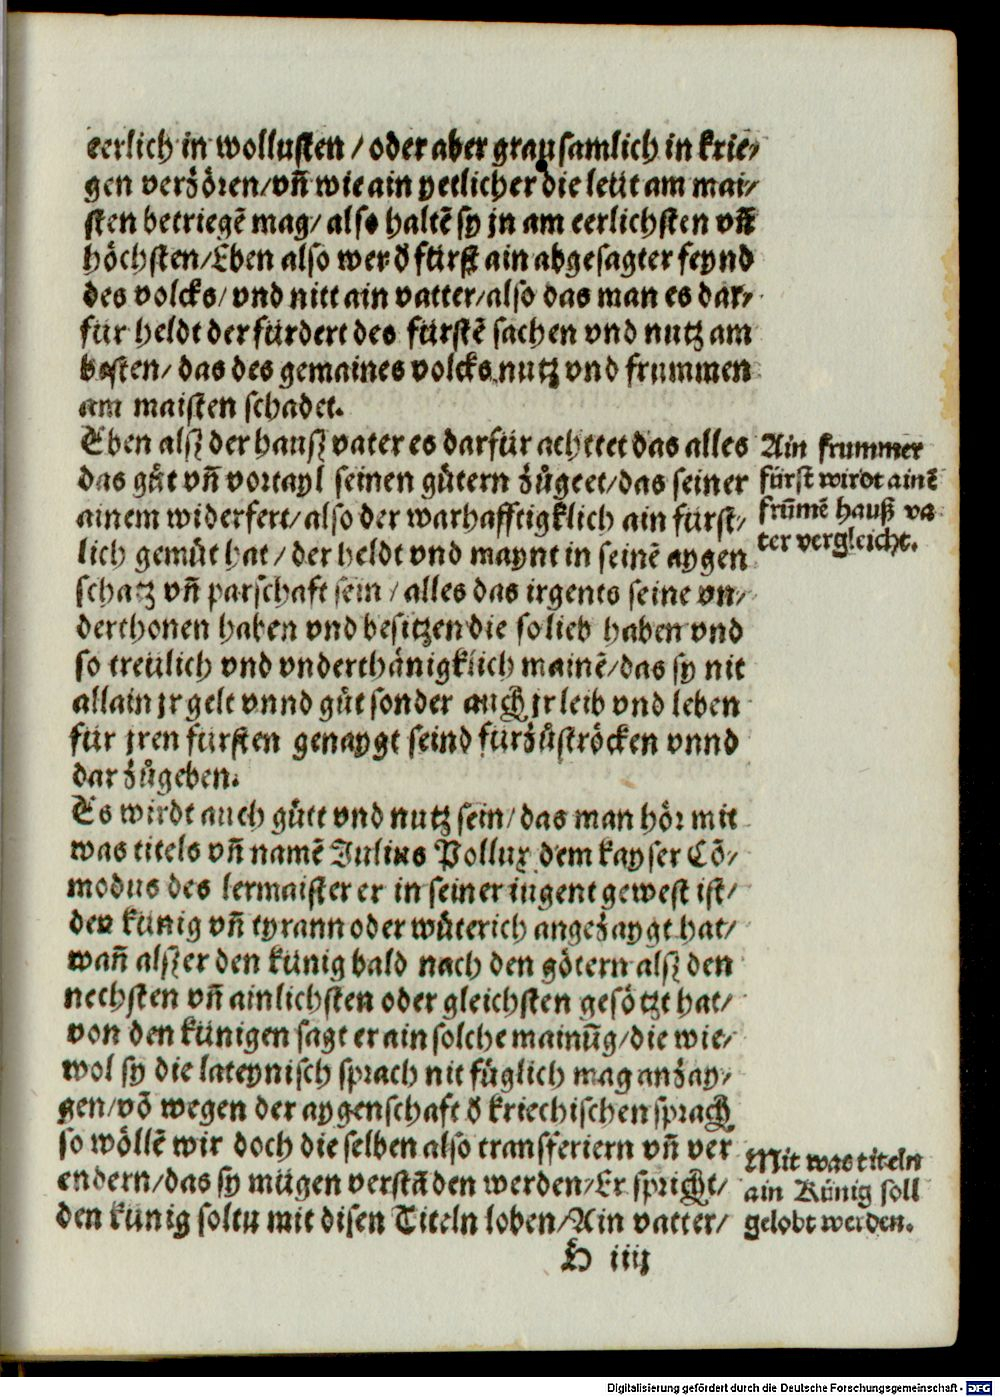 eerlich in wollusten / oder aber grausamlich in krie⸗
gen verzören / vñ wie ain yetlicher die leüt am mai⸗
sten betriegē mag / also haltē sy jn am eerlichsten vñ
höchsten / Eben also wer ð fürst ain abgesagter feynd
des volcks / vnd nitt ain vatter / also das man es dar⸗
für heldt der fürdert des fürstē sachen vnd nutz am
besten / das des gemaines volcks nutz vnd frummen
am maisten schadet.
Eben alsz der hausz vater es darfür achttet das alles
das gůt vñ vortayl seinen gůtern zůgeet / das seiner
ainem widerfert / also der warhafftigklich ain fürst⸗
lich gemůt hat / der heldt vnd maynt in seinē aygen
schatz vñ parschaft sein / alles das irgents seine vn⸗
derthonen haben vnd besitzen die so lieb haben vnd
so treülich vnd vnderthänigklich mainē / das sy nit
allain jr gelt vnnd gůt sonder auch jr leib vnd leben
für jren fürsten genaygt seind fürzůströcken vnnd
dar zůgeben.
Ain frummer
fürst wirdt ainē
frūmē hauß va
ter vergleicht.
Es wirdt auch gůtt vnd nutz sein / das man hör mit
was titels vñ namē Julius Pollux dem kayser Cō⸗
modus des lermaister er in seiner iugent gewest ist /
den künig vñ tyrann oder wůterich angezaygt hat /
wañ alsz er den künig bald nach den götern alsz den
nechsten vñ ainlichsten oder gleichsten gesötzt hat /
von den künigen sagt er ain solche mainūg / die wie⸗
wol sy die lateynisch sprach nit fůglich mag anzay⸗
gen / vō wegen der aygenschaft ð kriechischen sprach
so wöllē wir doch die selben also transferiern vñ ver
endern / das sy mügen verstāden werden / Er spricht /
den künig soltu mit disen Titeln loben / Ain vatter /
Mit was titeln
ain Künig soll
gelobt werden.
H iiij
Digitalisierung gefördert durch die Deutsche Forschungsgemeinschaft - DFG